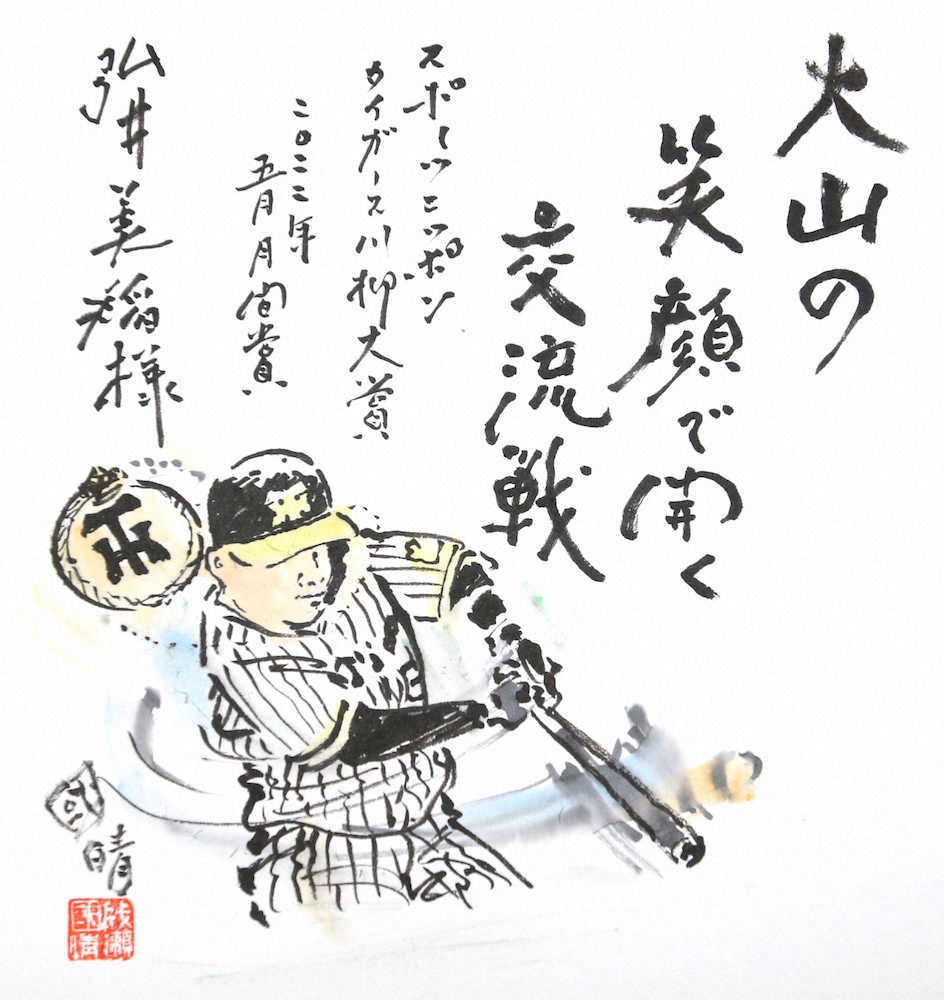 大山の
笑顔で開く
交流戦
スポーツニッポン
タイガース川柳大賞
二〇二二年
五月月間賞
弘井美稲様
国晴